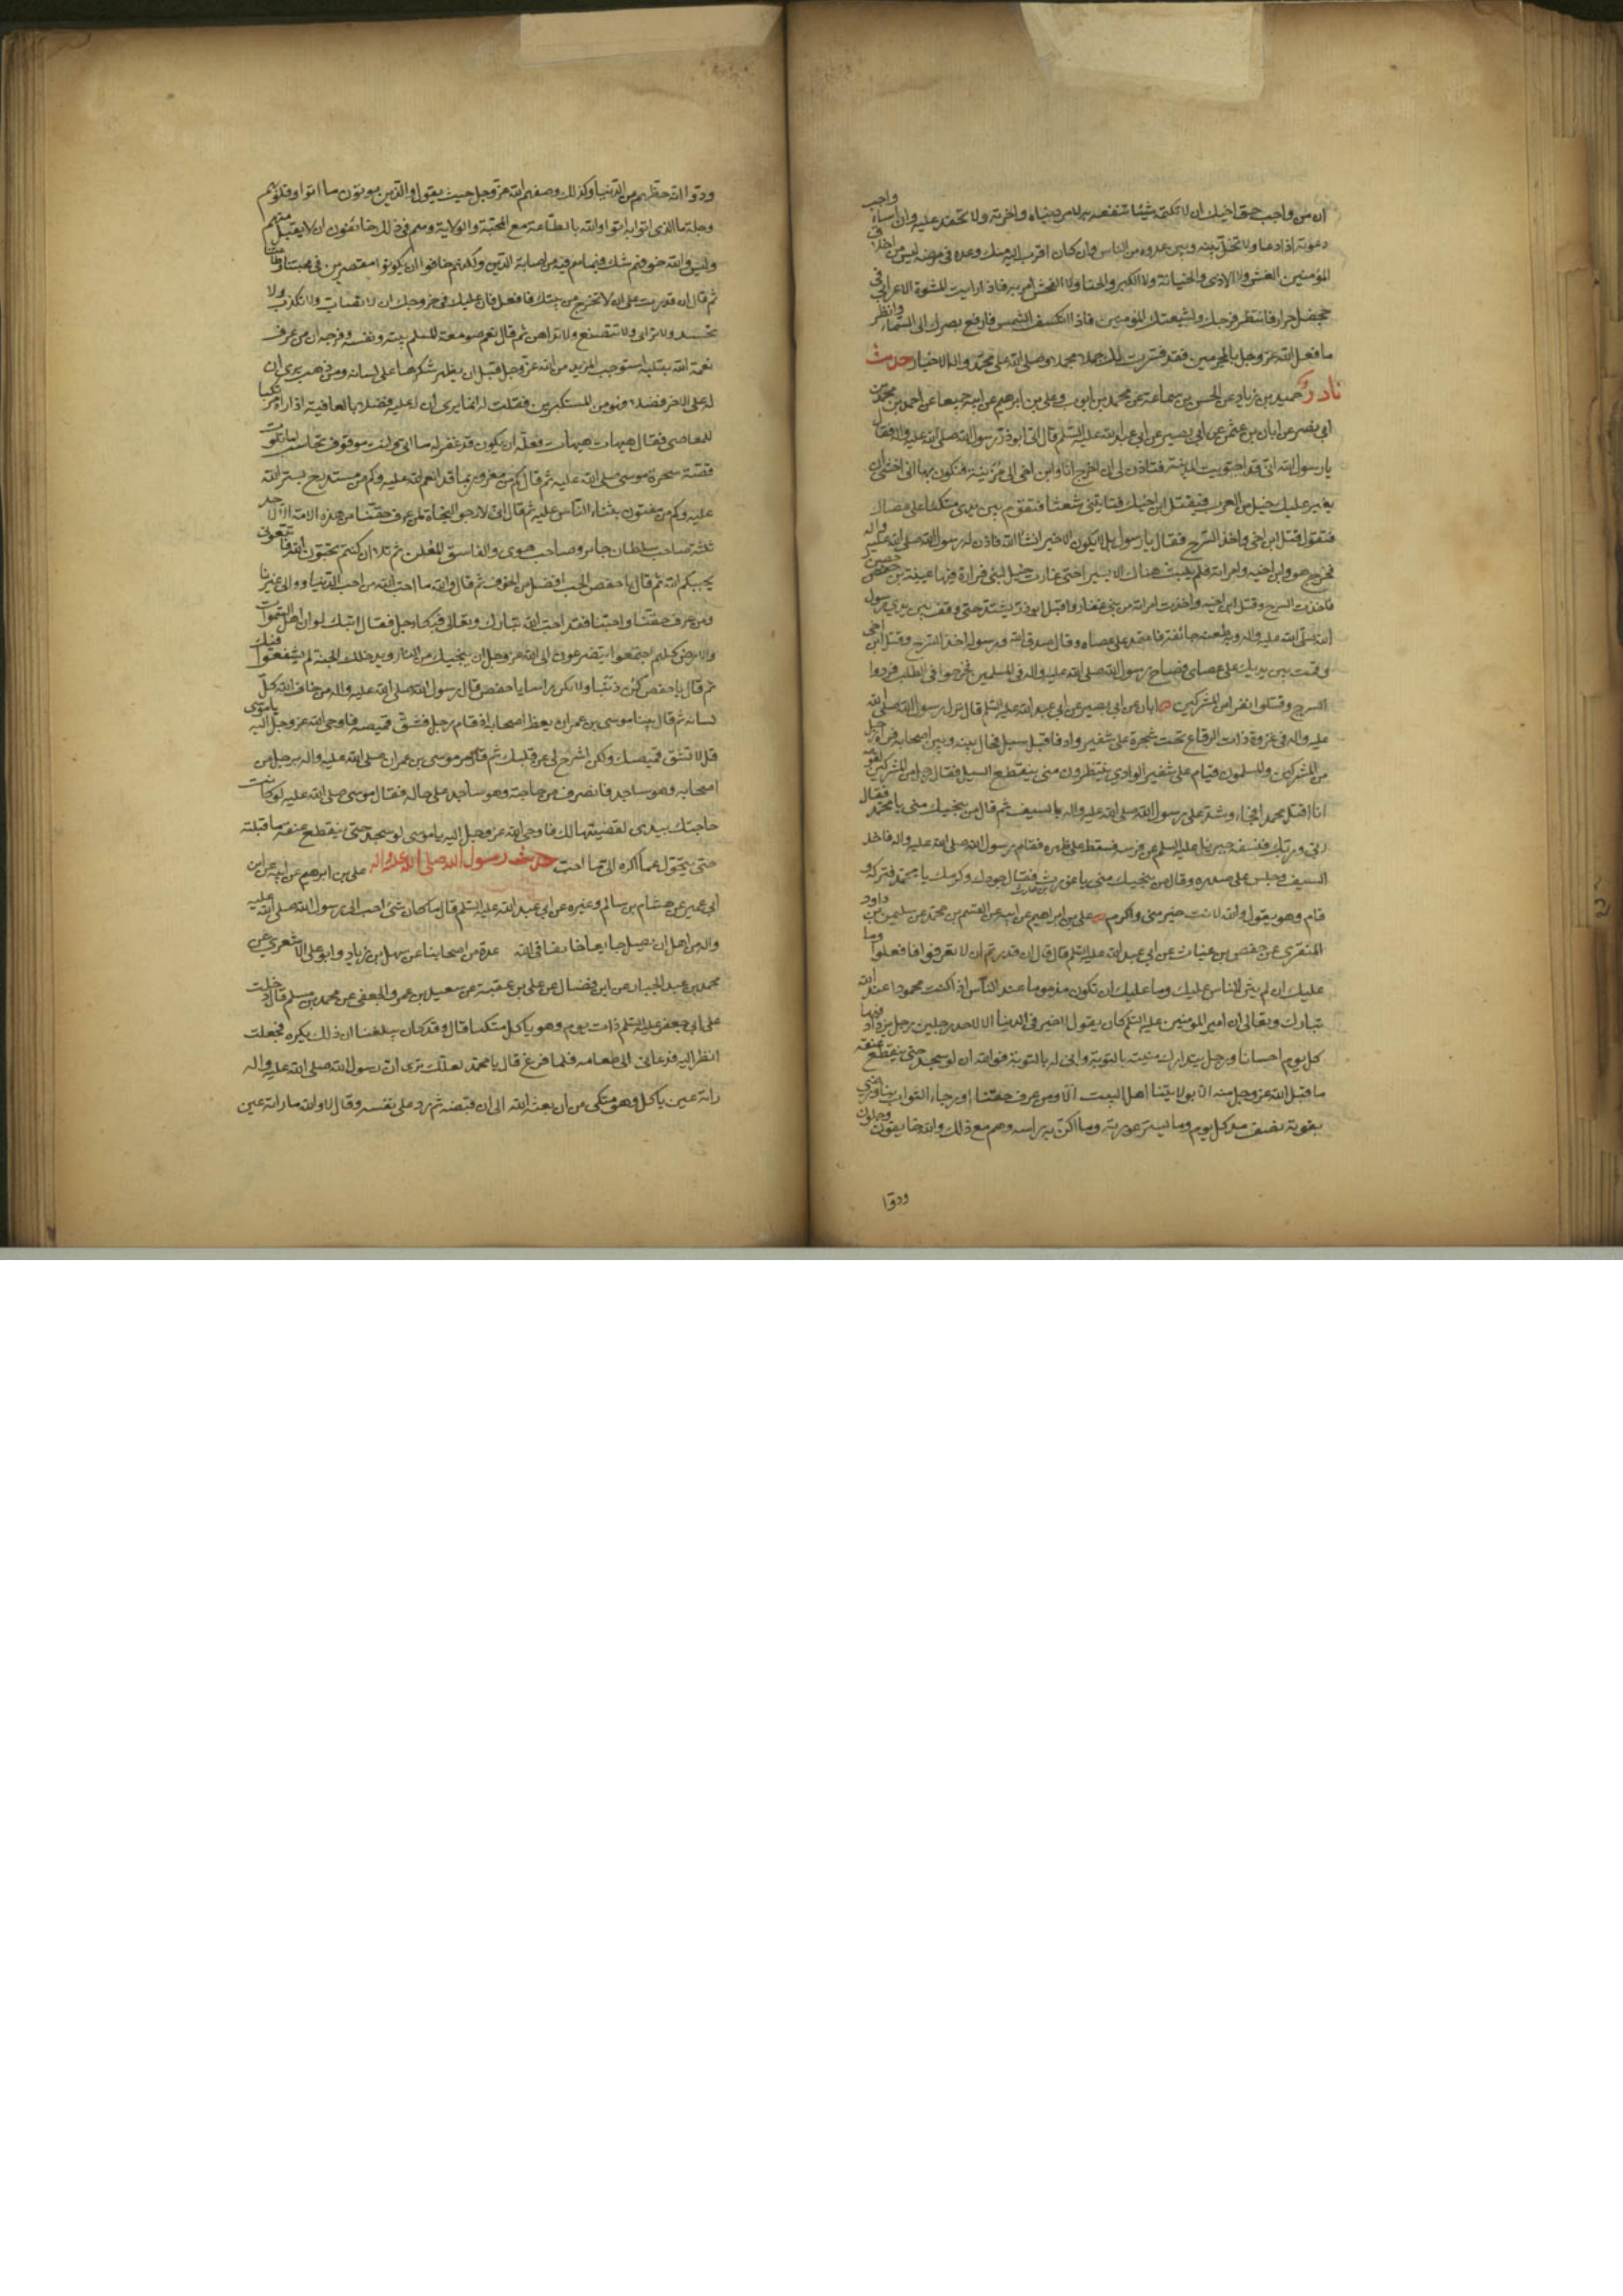 ان من واجب حق اخيك ان لا تكتمه شيئا تنفعه به لامر دنياه واخرته ولا تحقد عليه وان اساء واجب
دعوته اذا دعا ولا تخل بينه وبين عدوه من الناس وان كان اقرب اليه منك وعده في مرضه ليس من اخلاق
المؤمنين الغش ولا الاذى ولا الخيانة ولا الكبر ولا الخنا ولا الفحش ولا امر به فاذا رايت المشوه الاعرابي في
جحفل جرار فانتظر فرجك ولشيعتك المؤمنين فاذا انكسف الشمس فارفع بصرك الى السماء وانظر
ما فعل الله عز وجل بالمجرمين فقد فسرت لك جملا مجملا وصلى الله على محمد واله الاخيار حديث
نادر حميد بن زياد عن الحسن بن سماعة عن محمد بن ايوب وعلي بن ابرهيم عن ابيه جميعا عن احمد بن محمد بن
ابي نصر عن ابان بن عثمن عن ابي بصير عن ابي عبد الله عليه السلم قال اتى ابو ذر رسول الله صلى الله عليه واله فقال
يا رسول الله اني قد اجتويت المدينة فتاذن لي ان اخرج انا وابن اخي الى مزينة فنكون بها اني اخشى ان
يغير عليك خيل من العرب فيقتل ابن اخيك فتاتيني شعثا فتقوم بين يدي متكئا على عصاك
فتقول قتل ابن اخي واخذ السرح فقال يا رسول بل لا يكون الا خير انشا الله فاذن له رسول الله صلى الله عليه واله
فخرج هو وابن اخيه وامراته فلم يلبث هناك الا يسيرا حتى غارت خيل لبني فزارة فيها عيينة بن حصن
فاخذت السرح وقتل ابن اخيه واخذت امراته من بني غفار واقبل ابو ذر يشتد حتى وقف بين يدي رسول
الله صلى الله عليه واله وبه طعنة جائفة فاعتمد على عصاه وقال صدق الله ورسوله اخذ السرح وقتل ابن اخي
وقمت بين يديك على عصاي فصاح رسول الله صلى الله عليه واله في المسلمين فخرجوا في الطلب فردوا
السرح وقتلوا نفرا من المشركين ابان عن ابي بصير عن ابي عبد الله عليه السلم قال نزل رسول الله صلى الله
عليه واله في غزوة ذات الرقاع تحت شجرة على شفير واد فاقبل سيل فحال بينه وبين اصحابه فراه رجل
من المشركين والمسلمون قيام على شفير الوادي ينتظرون متى ينقطع السيل فقال رجل من المشركين لقومه
انا اقتل محمدا فجاء وشد على رسول الله صلى الله عليه واله بالسيف ثم قال من ينجيك مني يا محمد فقال
ربي وربك فنسفه جبرئيل عليه السلم عن فرسه فسقط على ظهره فقام رسول الله صلى الله عليه واله فاخذ
السيف وجلس على صدره وقال من ينجيك مني يا غورث فقال جودك وكرمك يا محمد فتركه و
قام وهو يقول والله لانت خير مني واكرم علي بن ابراهيم عن ابيه عن القسم بن محمد عن سليمن بن داود
المنقري عن حفص بن غياث عن ابي عبد الله عليه السلم قال قال ان قدرتم ان لا تعرفوا فافعلوا وما
عليك ان لم يثن الناس عليك وما عليك ان تكون مذموما عند الناس اذا كنت محمودا عند الله
تبارك وتعالى ان امير المؤمنين عليه السلم كان يقول لا خير في الدنيا الا لاحد رجلين رجل يزداد فيها
كل يوم احسانا ورجل يتدارك منيته بالتوبة وانى له بالتوبة فوالله ان لو سجد حتى ينقطع عنقه
ما قبل الله عز وجل منه الا بولايتنا اهل البيت الا ومن عرف حقنا او رجاء الثواب بنا ورضي
بقوته نصف مد كل يوم وما يستر عورته وما اكن به راسه وهم مع ذلك والله خايفون وجلون
ودوا
ودوا انه حظهم من الدنيا وكذلك وصفهم الله عز وجل حيث يقول والذين يوتون ما اتوا وقلوبهم
وجلة ما الذي اتوا به اتوا والله بالطاعة مع المحبة والولاية وهم في ذلك خائفون ان لا يقبل منهم
وليس والله خوفهم خوف شك فيما هم فيه من اصابة الدين ولكنهم خافوا ان يكونوا مقصرين في محبتنا وطاعتنا
ثم قال ان قدرت على ان لا تخرج من بيتك فافعل فان عليك في خروجك ان لا تغتاب ولا تكذب ولا
تحسد ولا ترائي ولا تتصنع ولا تداهن ثم قال نعم صومعة المسلم بيته ونفسه وفرجه ان من عرف
نعمة الله بقلبه استوجب المزيد من الله عز وجل قبل ان يظهر شكرها على لسانه ومن ذهب يرى ان
له على الاخر فضلا فهو من المستكبرين فقلت له انما يرى ان له عليه فضلا بالعافية اذا راه مرتكبا
للمعاصي فقال هيهات هيهات فعله ان يكون قد غفر له ما اتى وانت موقوف تحاسب اما تلوت
قصة سحرة موسى صلى الله عليه ثم قال كم من مغرور بما قد انعم الله عليه وكم من مستدرج بستر الله
عليه وكم من مفتون بثناء الناس عليه ثم قال اني لارجو النجاة لمن عرف حقنا من هذه الامة الا لاحد
ثلثة صاحب سلطان جاير وصاحب هوى والفاسق المعلن ثم تلا ان كنتم تحبون الله فاتبعوني
يحببكم الله ثم قال يا حفص الحب افضل من الخوف ثم قال والله ما احب الله من احب الدنيا ووالى غيرنا
ومن عرف حقنا واحبنا فقد احب الله تبارك وتعالى فبكى رجل فقال اتبك لو ان اهل السموات
والارض كلهم اجتمعوا يتضرعون الى الله عز وجل ان ينجيك من النار ويدخلك الجنة لم يشفعوا فيك
ثم قال يا حفص كن ذنبا ولا تكن راسا يا حفص قال رسول الله صلى الله عليه واله من خاف الله كل
لسانه ثم قال بينا موسى بن عمران يعظ اصحابه اذ قام رجل فشق قميصه فاوحى الله عز وجل اليه يا موسى
قل لا تشق قميصك ولكن اشرح لي عن قلبك ثم قال مر موسى بن عمران صلى الله عليه واله برجل من
اصحابه وهو ساجد فانصرف من حاجته وهو ساجد على حاله فقال موسى صلى الله عليه لو كانت
حاجتك بيدي لقضيتها لك فاوحى الله عز وجل اليه يا موسى لو سجد حتى ينقطع عنقه ما قبلته
حتى يتحول عما اكره الى ما احب حديث رسول الله صلى الله عليه واله علي بن ابرهيم عن ابيه عن ابن
ابي عمير عن هشام بن سالم وغيره عن ابي عبد الله عليه السلم قال ما كان شئ احب الى رسول الله صلى الله عليه
واله من ان يظل جايعا خايفا في الله عدة من اصحابنا عن سهل بن زياد وابو علي الاشعري عن
محمد بن عبد الجبار عن ابن فضال عن علي بن عقبة عن سعيد بن عمرو الجعفي عن محمد بن مسلم قال دخلت
على ابي جعفر عليه السلم ذات يوم وهو ياكل متكئا قال وقد كان يبلغنا ان ذلك يكره فجعلت
انظر اليه فدعاني الى طعامه فلما فرغ قال يا محمد لعلك ترى ان رسول الله صلى الله عليه واله
راته عين ياكل وهو متكي من ان بعثه الله الى ان قبضه ثم رد على نفسه وقال لا والله ما راته عين